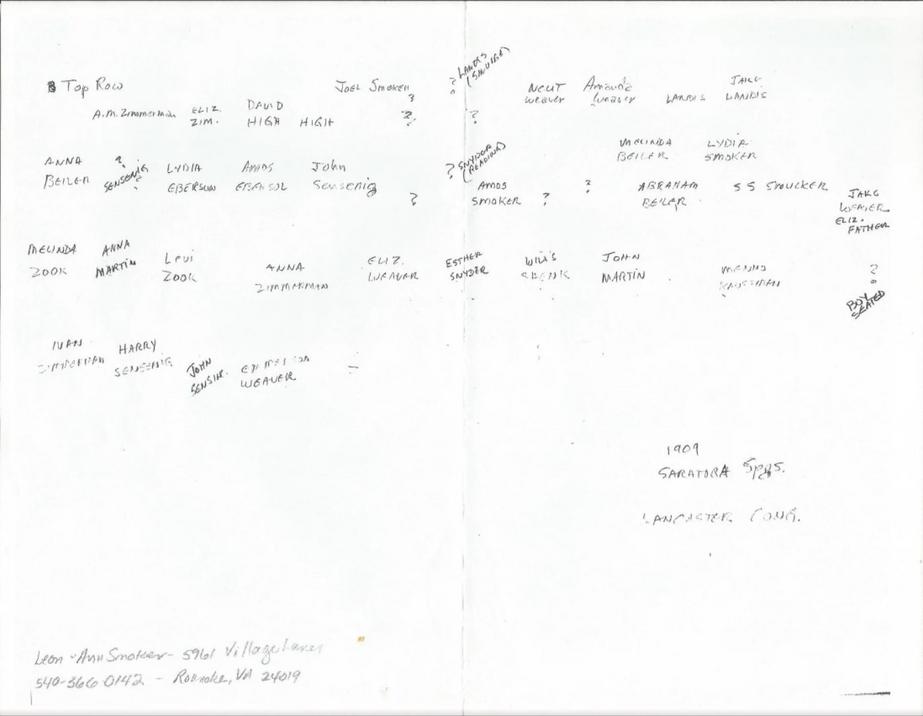 Top Row
JOEL SMOKER ? ? LANDIS (SMUCKER)
NEUT WEAVER Amanda Weaver LANDIS JAKE LANDIS
A.M. Zimmerman ELIZ. ZIM. DAVID HIGH HIGH ? ?
MELINDA BEILER LYDIA SMOKER
ANNA BEILER ? SENSENIG LYDIA EBERSOL AMOS EBERSOL John Sensenig ? SNYDER (READING)
? AMOS SMOKER ? ? ABRAHAM BEILER S S SMUCKER JAKE WEAVER ELIZ. FATHER
MELINDA ZOOK ANNA MARTIN Levi ZOOK ANNA ZIMMERMAN ELIZ. WEAVER ESTHER SNYDER JOHN MARTIN MENNO ?
BOY SEATED
IVAN ZIMMERMAN HARRY SENSENIG JOHN SENSING. WEAVER –
1909
SARATOGA Spgs.
LANCASTER CONG.
Leon & Ann Smoker - 5961 Village Lane
540-366-0142 - Roanoke, VA 24019